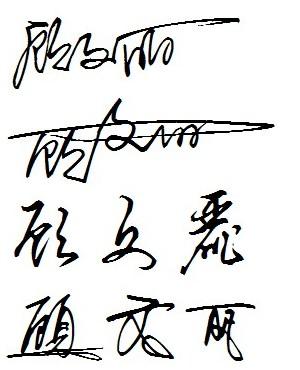 顾文丽
顾文丽
顾文麗
顾文丽